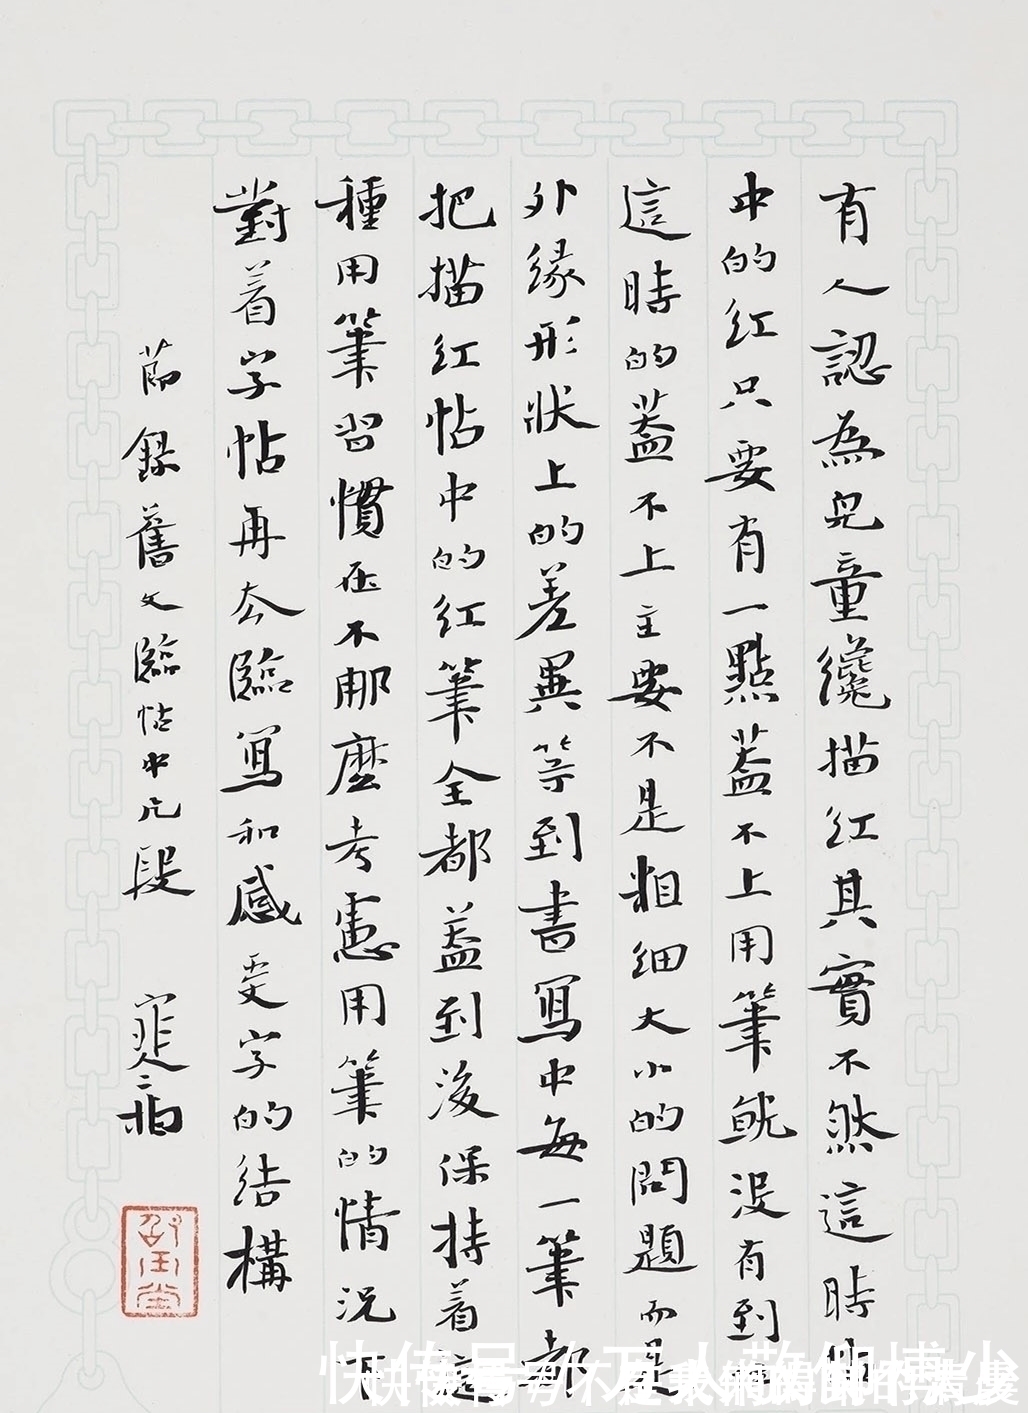 有人認為兒童纔描紅其實不然這時
中的紅只要有一點蓋不上用筆就没有到
這時的蓋不上主要不是粗細大小的問題而是
外緣形狀上的差異等到書寫中每一筆都
把描紅帖中的紅筆全都蓋到後保持着這
種用筆習慣在不那麼考慮用筆的情況下
對着字帖再去臨寫和感受字的結構
節録舊文臨帖中片段